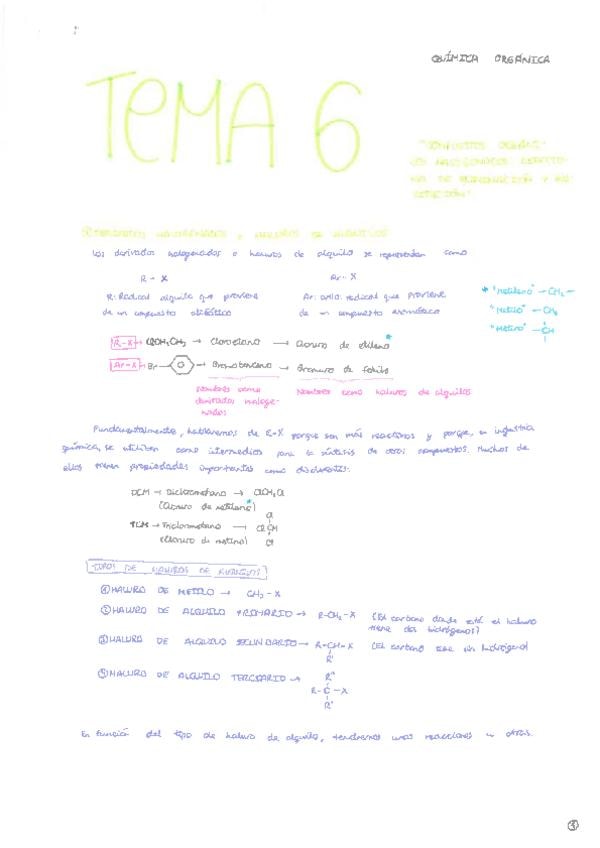 QUÍMICA ORGÁNICA
TEMA 6
"COMPUESTOS ORGÁNI-
COS HALOGENADOS.
DE SUSTITUCIÓN Y
Los derivados halogenados o haluros de alquilo se representan como
R-X Ar-X
R: Radical alquilo que proviene
de un compuesto alifático
Ar: arilo: radical que proviene
de un compuesto aromático
* "Metileno" -CH2-
"Metilo" -CH3
"Metino" -CH
R-X → ClCH2CH3 → Cloroetano → Cloruro de etileno*
Ar-X → Br- → Bromobenceno → Bromuro de fenilo
Nombres como
derivados haloge-
nados
Nombres como haluros de alquilo
Fundamentalmente, hablaremos de R-X porque son más reactivos y porque, en industria
química, se utilizan como intermedios para la síntesis de otros compuestos. Muchos de
ellos tienen propiedades importantes como disolventes:
DCM → Diclorometano → ClCH2Cl
(Cloruro de metileno*)
TCM → Triclorometano → Cl CH
Cl
Cl
(Cloruro de metino)
TIPOS DE HALUROS DE ALQUILO
① HALURO DE METILO → CH3-X
② HALURO DE ALQUILO PRIMARIO → R-CH2-X (El carbono donde está el haluro
tiene dos hidrógenos)
③ HALURO DE ALQUILO SECUNDARIO → R-CH-X (El carbono tiene un hidrógeno)
R'
HALURO DE ALQUILO TERCIARIO → R''
R-C-X
R'
En función del tipo de haluro de alquilo, tendremos unas reacciones u otras.